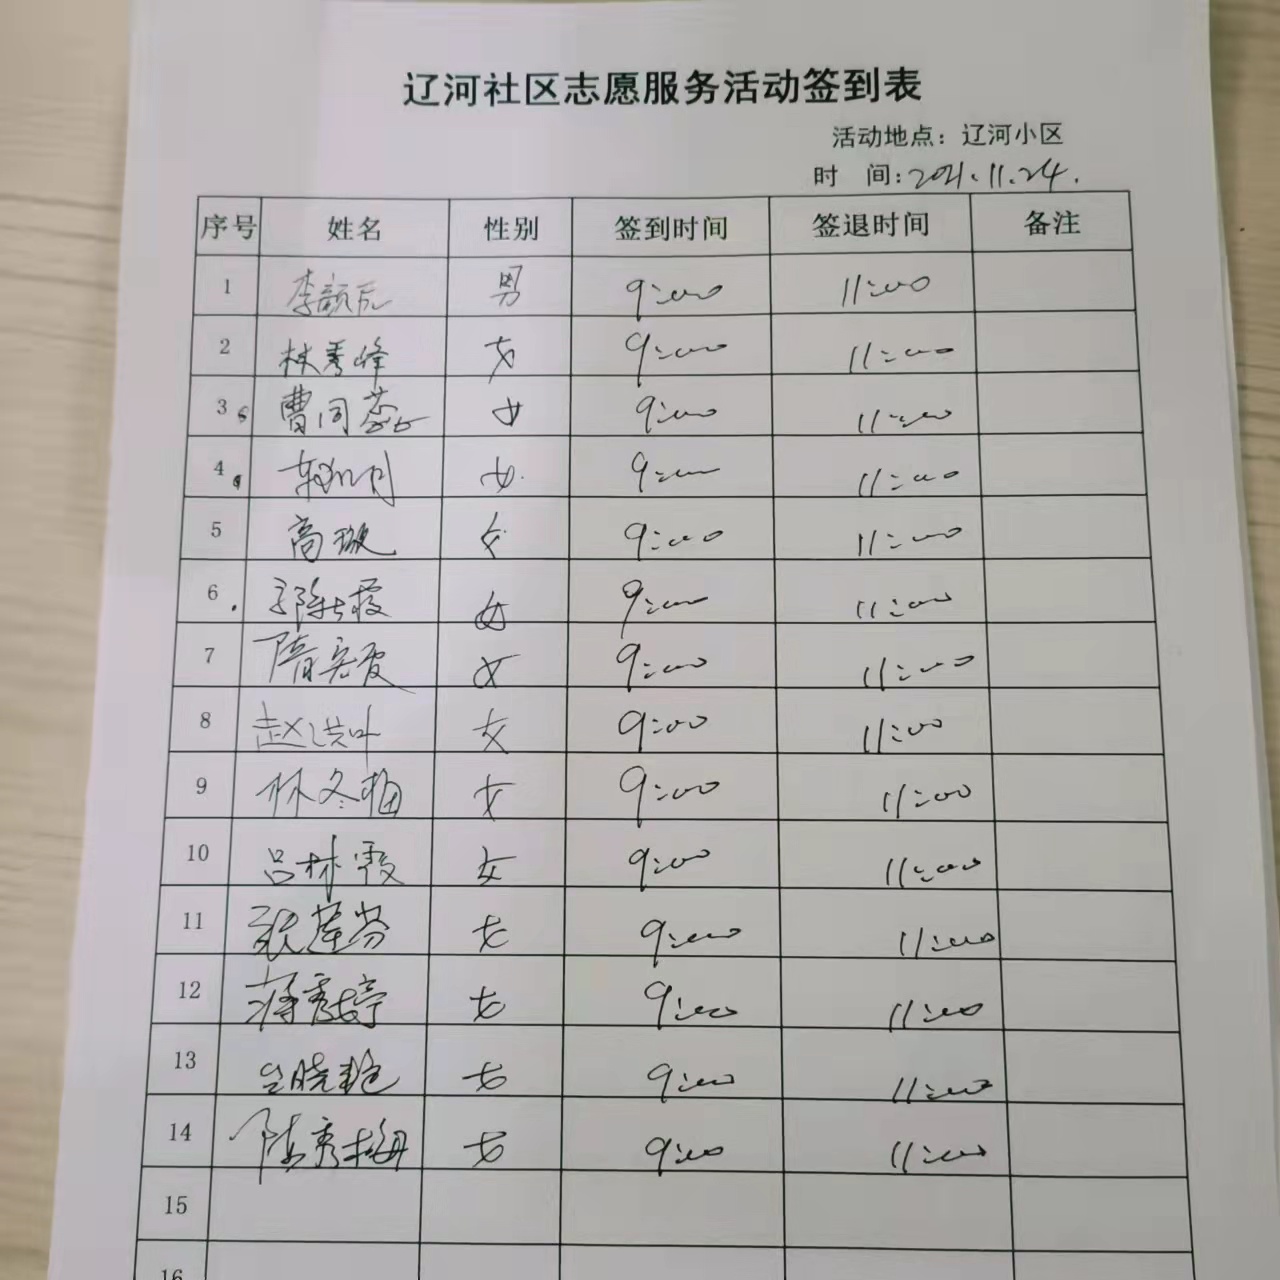 辽河社区志愿服务活动签到表
活动地点：辽河小区
时 间：2021.11.24.
序号 姓名 性别 签到时间 签退时间 备注
1 李 男 9:00 11:00
2 林秀峰 女 9:00 11:00
3 曹同蕊 女 9:00 11:00
4 女 9:00 11:00
5 高 女 9:00 11:00
6 霞 女 9:00 11:00
7 隋 女 9:00 11:00
8 赵洪叶 女 9:00 11:00
9 林冬梅 女 9:00 11:00
10 吕林霞 女 9:00 11:00
11 莲芬 女 9:00 11:00
12 蒋秀婷 女 9:00 11:00
13 晓艳 女 9:00 11:00
14 陈秀梅 女 9:00 11:00
15
16